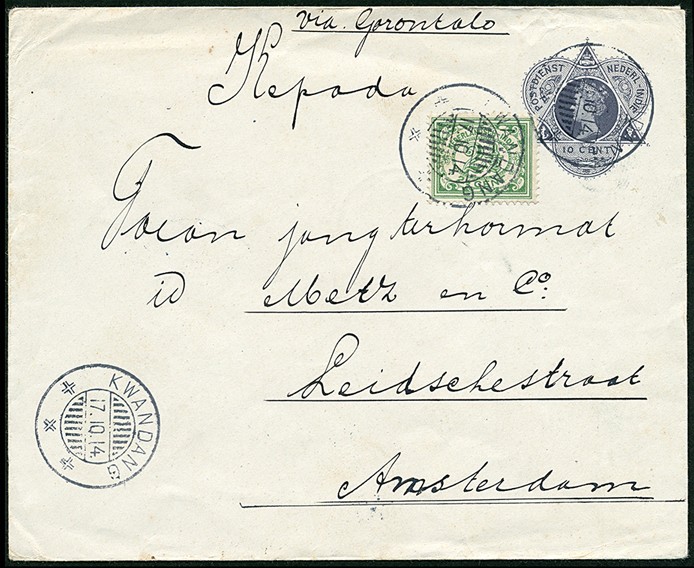 via Gorontalo
Kepada
POSTDIENST NEDERL. INDIE
10 CENT
KWANDANG
10.14.
Toean jang terhormat
id Metz en Co.
Leidschestraat
Amsterdam
KWANDANG
17.10.14.